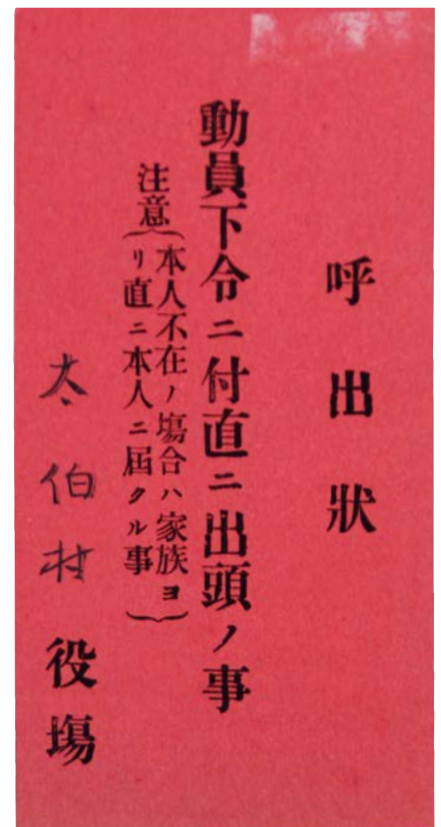 呼出狀
動員下令ニ付直ニ出頭ノ事
注意（本人不在ノ塲合ハ家族ヨ
リ直ニ本人ニ屆クル事）
太伯村役塲